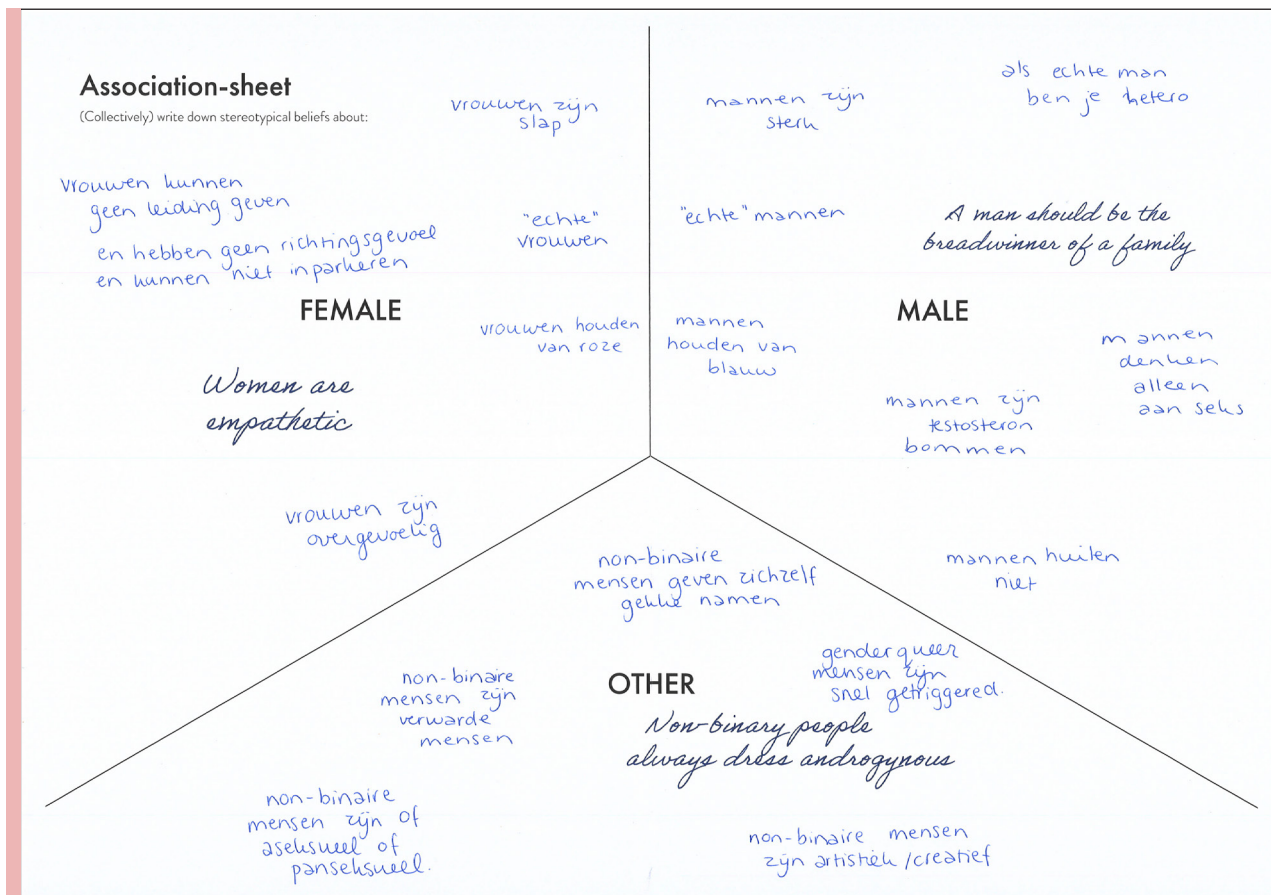 Association-sheet
(Collectively) write down stereotypical beliefs about:
vrouwen zijn
slap
vrouwen kunnen
geen leiding geven
en hebben geen richtingsgevoel
en kunnen niet inparkeren
"echte"
vrouwen
FEMALE
vrouwen houden
van roze
Women are
empathetic
vrouwen zijn
overgevoelig
mannen zijn
sterk
als echte man
ben je hetero
"echte" mannen
A man should be the
breadwinner of a family
MALE
mannen
houden van
blauw
mannen
denken
alleen
aan seks
mannen zijn
testosteron
bommen
mannen huilen
niet
non-binaire
mensen geven zichzelf
gekke namen
OTHER
genderqueer
mensen zijn
snel getriggered.
non-binaire
mensen zijn
verwarde
mensen
Non-binary people
always dress androgynous
non-binaire
mensen zijn of
aseksueel of
panseksueel.
non-binaire mensen
zijn artistiek/creatief